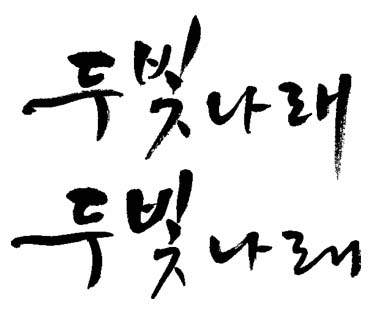 두빛나래
두빛나래